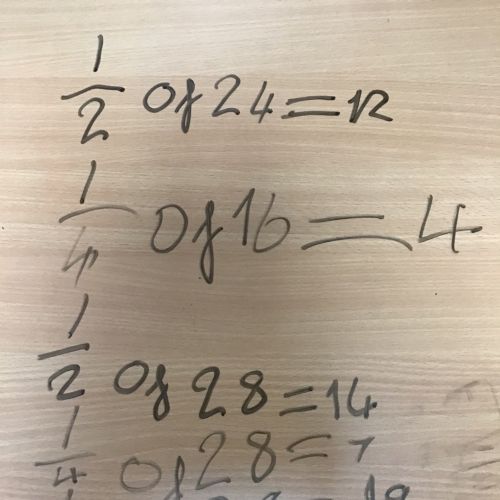 1/2 of 24 = 12
1/4 of 16 = 4
1/2 of 28 = 14
1/4 of 28 =